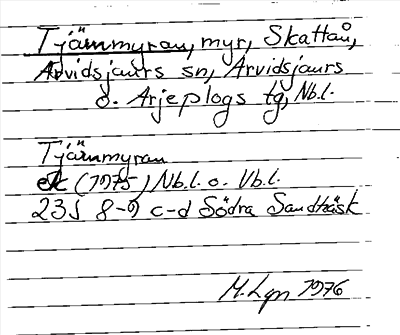 Tjämmyran, myr, Skattån,
Arvidsjaurs sn, Arvidsjaurs
o. Arjeplogs tg, Nb.l.
Tjärnmyran
ek (1975) Nb.l. o. Vb.l.
23J 8-9 c-d Södra Sandträsk
M. Lgn 1976